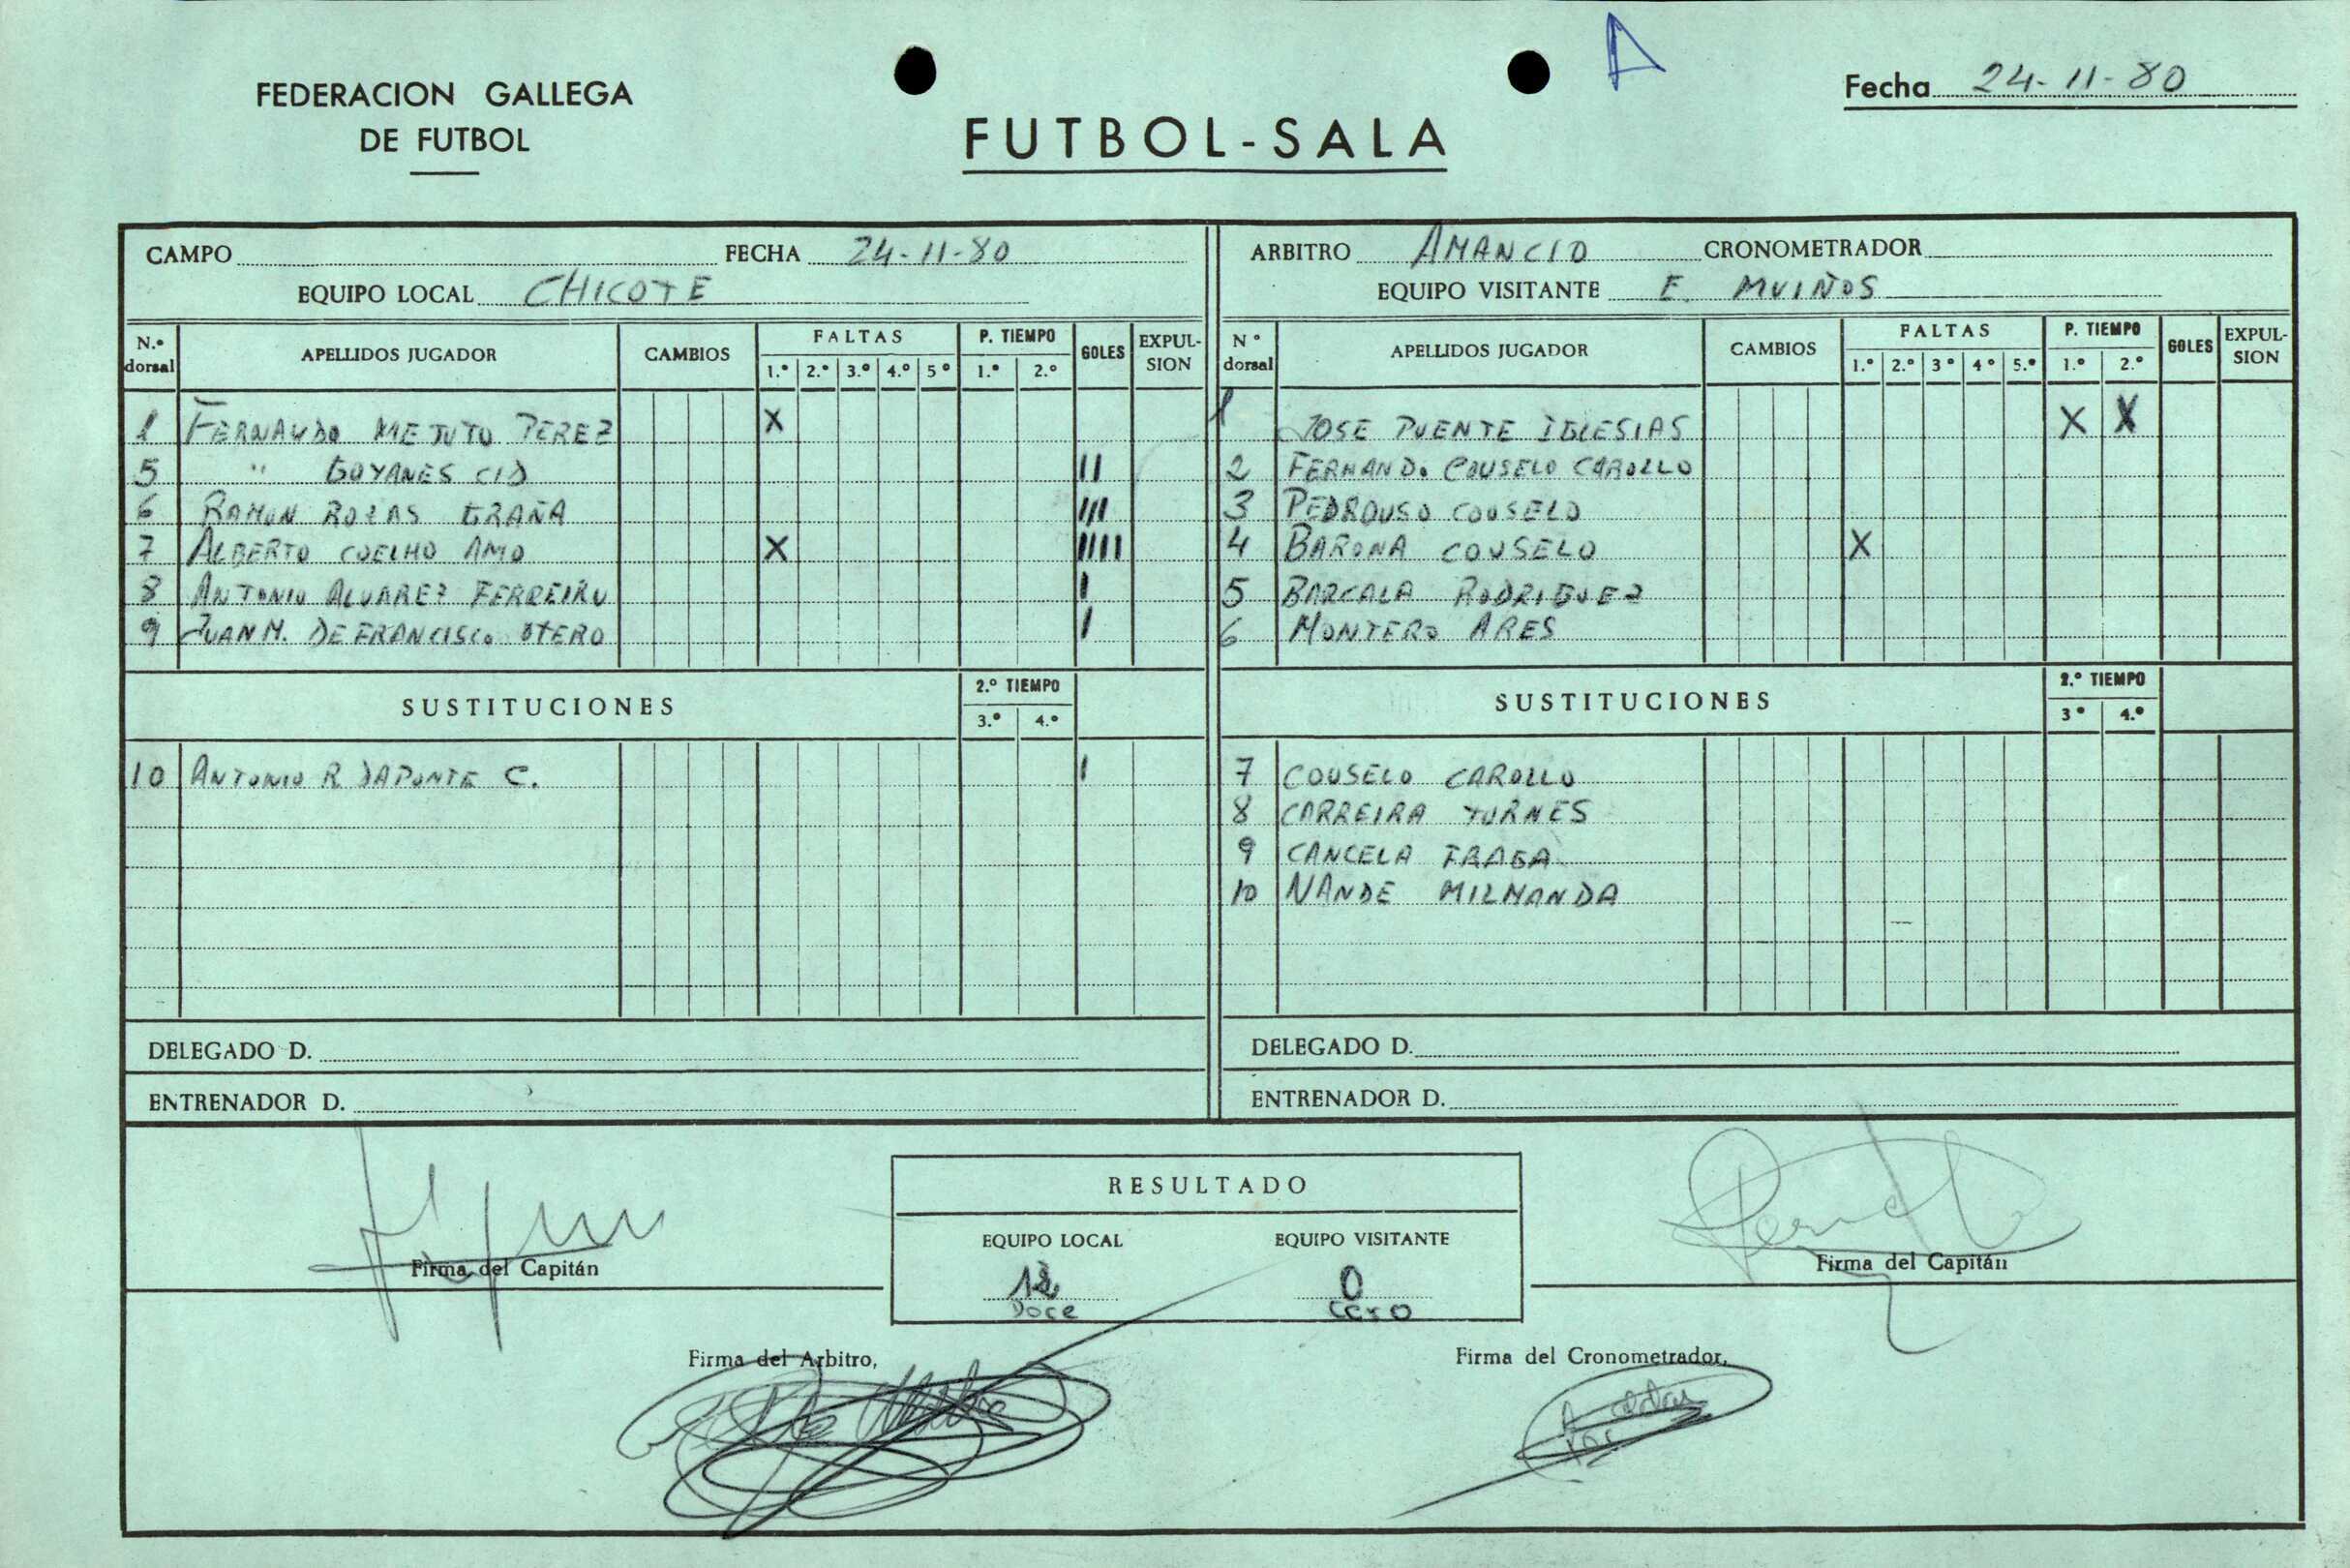 FEDERACION GALLEGA
DE FUTBOL
FUTBOL-SALA
A
Fecha 24-11-80
CAMPO FECHA 24-11-80
EQUIPO LOCAL CHICOTE
N.º dorsal APELLIDOS JUGADOR CAMBIOS FALTAS 1.º 2.º 3.º 4.º 5º P. TIEMPO 1.º 2.º GOLES EXPULSION
1 FERNANDO METUTO PEREZ X
5 " GOYANES CID II
6 RAMON ROZAS GRAÑA III
7 ALBERTO COELHO AMO X IIII
8 ANTONIO ALVAREZ FERREIRO I
9 JUAN M. DE FRANCISCO OTERO I
SUSTITUCIONES 2.º TIEMPO 3.º 4.º
10 ANTONIO R DAPONTE C. I
DELEGADO D.
ENTRENADOR D.
ARBITRO AMANCIO CRONOMETRADOR
EQUIPO VISITANTE E. MUIÑOS
Nº dorsal APELLIDOS JUGADOR CAMBIOS FALTAS 1.º 2.º 3º 4º 5.º P. TIEMPO 1.º 2.º GOLES EXPULSION
1 JOSE PUENTE IGLESIAS X X
2 FERNANDO COUSELO CAROLLO
3 PEDROUSO COUSELO
4 BARONA COUSELO X
5 BARCALA RODRIGUEZ
6 MONTERO ARES
SUSTITUCIONES 2.º TIEMPO 3º 4.º
7 COUSELO CAROLLO
8 CARREIRA TURNES
9 CANCELA FRAGA
10 NANDE MILMANDA
DELEGADO D.
ENTRENADOR D.
RESULTADO
EQUIPO LOCAL EQUIPO VISITANTE
12 0
Doce Cero
Firma del Capitán
Firma del Capitán
Firma del Arbitro,
Firma del Cronometrador,